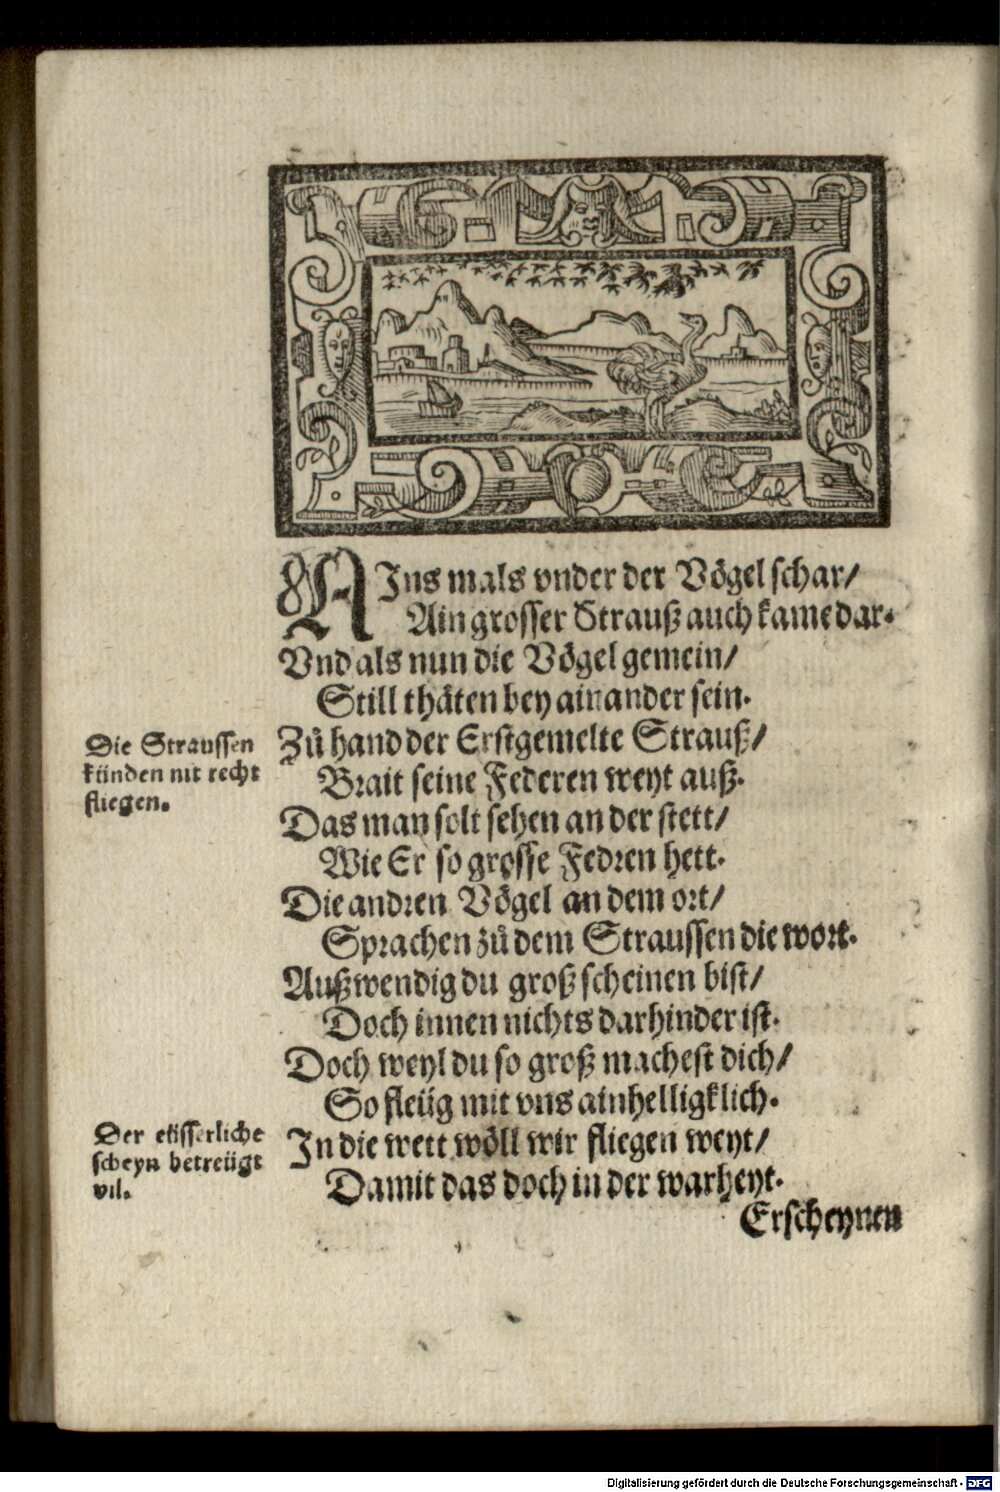 AJns mals vnder der Vögel schar/
Ain grosser Strauß auch kame dar.
Vnd als nun die Vögel gemein/
Still thäten bey ainander sein.
Die Straussen
künden nit recht
fliegen.
Zů hand der Erstgemelte Strauß/
Brait seine Federen weyt auß.
Das man solt sehen an der stett/
Wie Er so grosse Fedren hett.
Die andren Vögel an dem ort/
Sprachen zů dem Straussen die wort.
Außwendig du groß scheinen bist/
Doch innen nichts darhinder ist.
Doch weyl du so groß machest dich/
So fleüg mit vns ainhelligklich.
Der eüsserliche
scheyn betreügt
vil.
In die wett wöll wir fliegen weyt/
Damit das doch in der warheyt.
Erscheynen
Digitalisierung gefördert durch die Deutsche Forschungsgemeinschaft - DFG